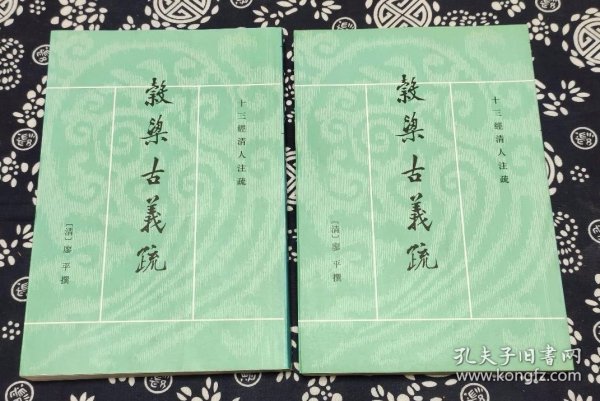 十三經清人注疏
穀梁古義疏
〔清〕廖平撰
十三經清人注疏
穀梁古義疏
〔清〕廖平撰
孔夫子旧书网
www.kongfz.com